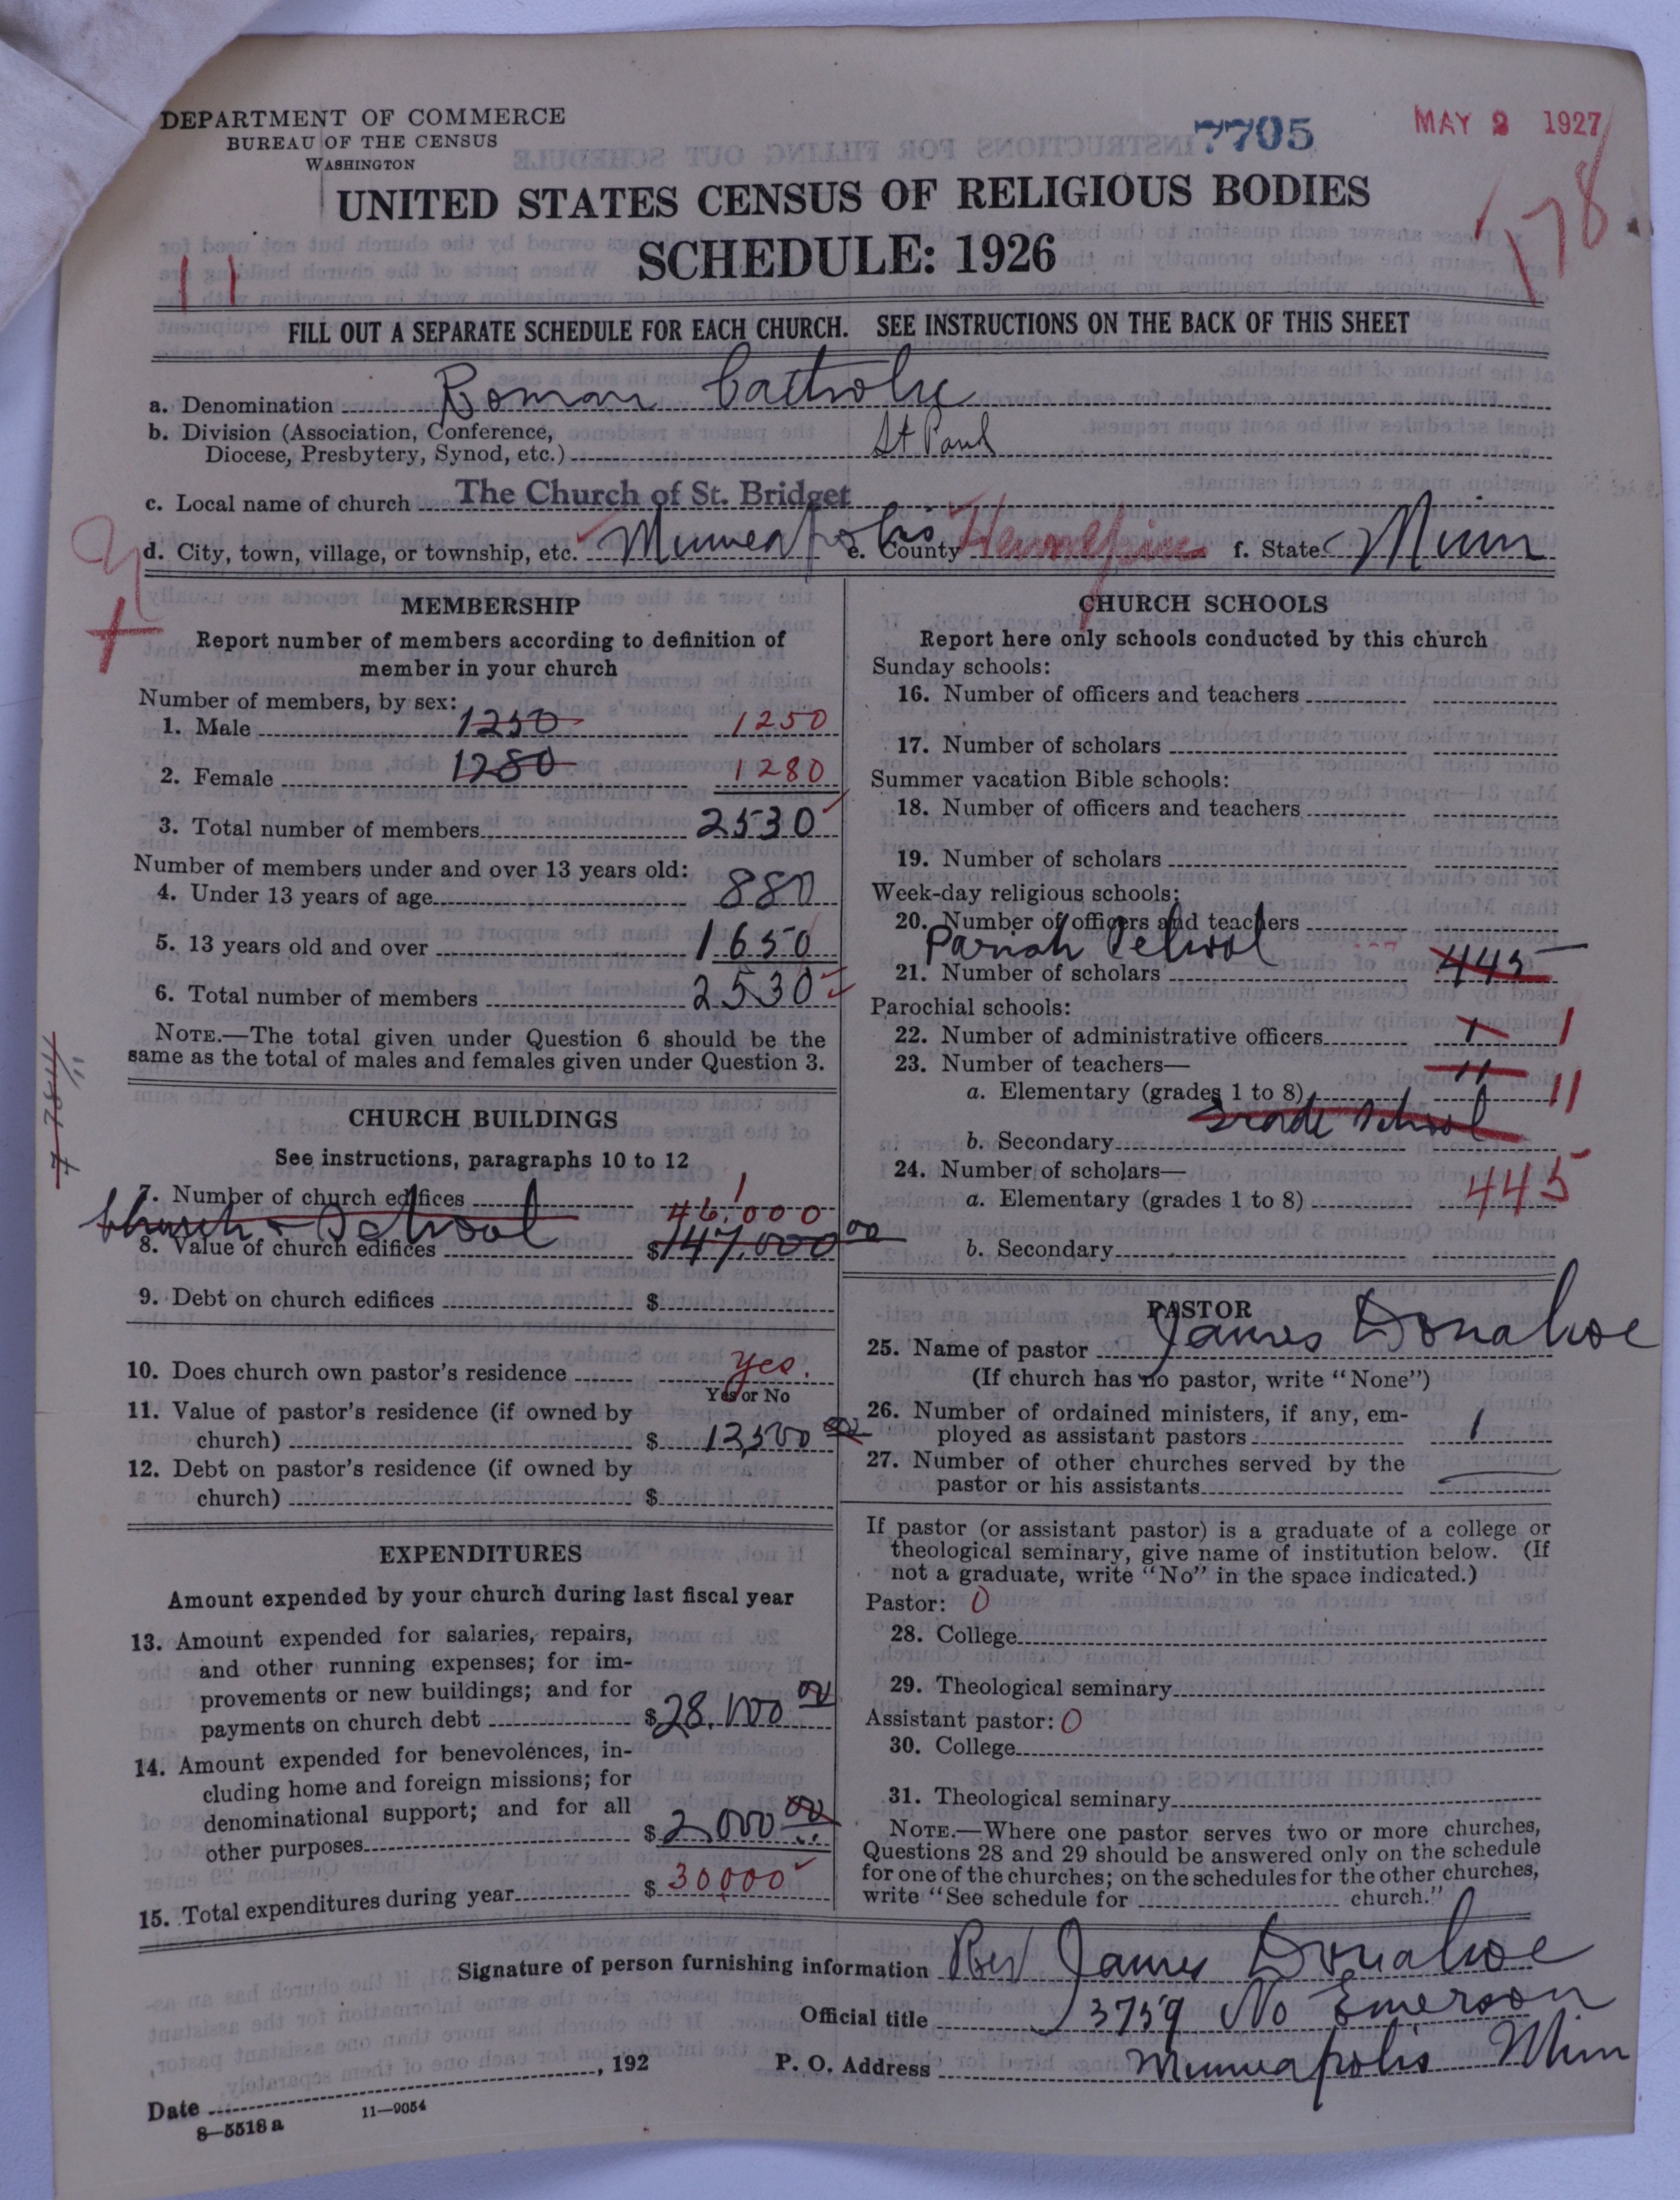 DEPARTMENT OF COMMERCE
BUREAU OF THE CENSUS
WASHINGTON
7705
MAY 2 1927
178
UNITED STATES CENSUS OF RELIGIOUS BODIES
SCHEDULE: 1926
11
FILL OUT A SEPARATE SCHEDULE FOR EACH CHURCH. SEE INSTRUCTIONS ON THE BACK OF THIS SHEET
a. Denomination Roman Catholic
b. Division (Association, Conference,
Diocese, Presbytery, Synod, etc.) St Paul
c. Local name of church The Church of St. Bridget
d. City, town, village, or township, etc. Minneapolis e. County Hennepin f. State Minn
MEMBERSHIP
Report number of members according to definition of
member in your church
Number of members, by sex:
1. Male 1250 1250
2. Female 1280 1280
3. Total number of members 2530
Number of members under and over 13 years old:
4. Under 13 years of age 880
5. 13 years old and over 1650
6. Total number of members 2530
NOTE.—The total given under Question 6 should be the
same as the total of males and females given under Question 3.
CHURCH BUILDINGS
See instructions, paragraphs 10 to 12
7. Number of church edifices 1
Church & School 46,000
8. Value of church edifices $147,000 00
9. Debt on church edifices $
10. Does church own pastor's residence Yes.
Yes or No
11. Value of pastor's residence (if owned by
church) $ 13,500 00
12. Debt on pastor's residence (if owned by
church) $
EXPENDITURES
Amount expended by your church during last fiscal year
13. Amount expended for salaries, repairs,
and other running expenses; for im-
provements or new buildings; and for
payments on church debt $28,000 00
14. Amount expended for benevolences, in-
cluding home and foreign missions; for
denominational support; and for all
other purposes $2,000 00
15. Total expenditures during year $ 30,000
CHURCH SCHOOLS
Report here only schools conducted by this church
Sunday schools:
16. Number of officers and teachers
17. Number of scholars
Summer vacation Bible schools:
18. Number of officers and teachers
19. Number of scholars
Week-day religious schools:
20. Number of officers and teachers
Parish School
21. Number of scholars 445
Parochial schools:
22. Number of administrative officers 1 1
23. Number of teachers—
11
a. Elementary (grades 1 to 8) 11
Grade School
b. Secondary
24. Number of scholars—
a. Elementary (grades 1 to 8) 445
b. Secondary
PASTOR
25. Name of pastor James Donahoe
(If church has no pastor, write "None")
26. Number of ordained ministers, if any, em-
ployed as assistant pastors 1
27. Number of other churches served by the
pastor or his assistants
If pastor (or assistant pastor) is a graduate of a college or
theological seminary, give name of institution below. (If
not a graduate, write "No" in the space indicated.)
Pastor: 0
28. College
29. Theological seminary
Assistant pastor: 0
30. College
31. Theological seminary
NOTE.—Where one pastor serves two or more churches,
Questions 28 and 29 should be answered only on the schedule
for one of the churches; on the schedules for the other churches,
write "See schedule for church."
Signature of person furnishing information Rev James Donahoe
Official title 3759 No Emerson
Date , 192 P. O. Address Minneapolis Minn
8—5518a 11—9054